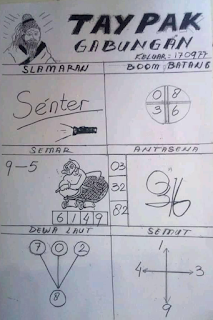 TAYPAK
GABUNGAN
KELUAR: 170977
SLAMARAN
BOOM BATANG
Senter
0 8
3 6
SEMAR
ANTASENA
9-5
03
32
82
6 1 4 9
36
DEWA LAUT
SEMUT
7 0 2
8
1
4 3
9